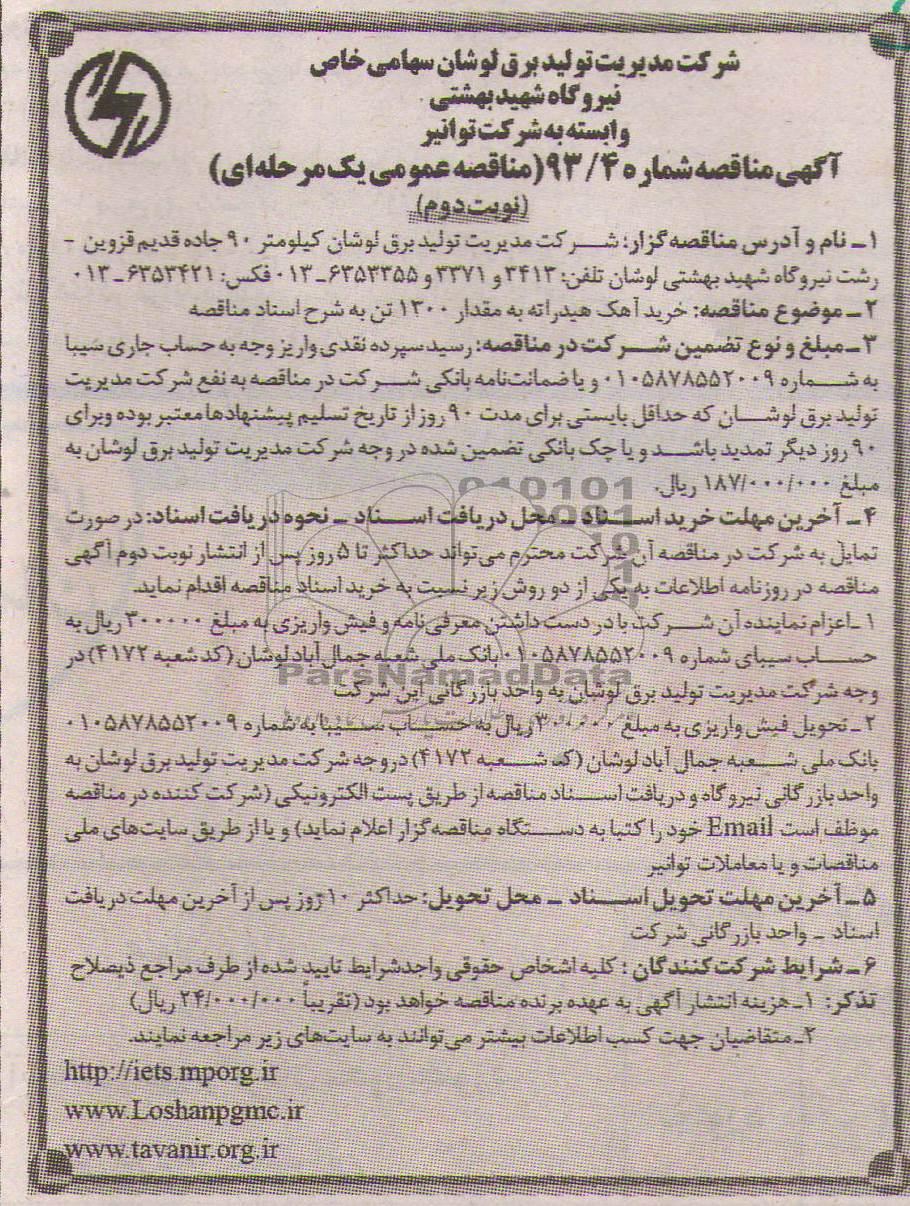 شرکت مدیریت تولید برق لوشان سهامی خاص
نیروگاه شهید بهشتی
وابسته به شرکت توانیر
آگهی مناقصه شماره ۹۳/۴ (مناقصه عمومی یک مرحله‌ای)
(نوبت دوم)
۱ـ نام و آدرس مناقصه گزار: شرکت مدیریت تولید برق لوشان کیلومتر ۹۰ جاده قدیم قزوین -
رشت نیروگاه شهید بهشتی لوشان تلفن: ۳۴۱۳ و ۳۳۷۱ و ۶۳۵۳۳۵۵ـ۰۱۳ فکس: ۶۳۵۳۴۲۱ـ۰۱۳
۲ـ موضوع مناقصه: خرید آهک هیدراته به مقدار ۱۳۰۰ تن به شرح اسناد مناقصه
۳ـ مبلغ و نوع تضمین شرکت در مناقصه: رسید سپرده نقدی واریز وجه به حساب جاری سیبا
به شماره ۰۱۰۵۸۷۸۵۵۲۰۰۹ و یا ضمانت‌نامه بانکی شرکت در مناقصه به نفع شرکت مدیریت
تولید برق لوشان که حداقل بایستی برای مدت ۹۰ روز از تاریخ تسلیم پیشنهادها معتبر بوده وبرای
۹۰ روز دیگر تمدید باشد و یا چک بانکی تضمین شده در وجه شرکت مدیریت تولید برق لوشان به
مبلغ ۱۸۷/۰۰۰/۰۰۰ ریال.
۴ـ آخرین مهلت خرید اسناد ـ محل دریافت اسناد ـ نحوه دریافت اسناد: در صورت
تمایل به شرکت در مناقصه آن شرکت محترم می‌تواند حداکثر تا ۵ روز پس از انتشار نوبت دوم آگهی
مناقصه در روزنامه اطلاعات به یکی از دو روش زیر نسبت به خرید اسناد مناقصه اقدام نماید.
۱ـ اعزام نماینده آن شرکت با در دست داشتن معرفی‌نامه و فیش واریزی به مبلغ ۳۰۰۰۰۰ ریال به
حساب سیبای شماره ۰۱۰۵۸۷۸۵۵۲۰۰۹ بانک ملی شعبه جمال آباد لوشان (کد شعبه ۴۱۷۲) در
وجه شرکت مدیریت تولید برق لوشان به واحد بازرگانی این شرکت
۲ـ تحویل فیش واریزی به مبلغ ۳۰۰۰۰۰ ریال به حساب سیبا به شماره ۰۱۰۵۸۷۸۵۵۲۰۰۹
بانک ملی شعبه جمال آباد لوشان (کد شعبه ۴۱۷۲) در وجه شرکت مدیریت تولید برق لوشان به
واحد بازرگانی نیروگاه و دریافت اسناد مناقصه از طریق پست الکترونیکی (شرکت کننده در مناقصه
موظف است Email خود را کتبا به دستگاه مناقصه‌گزار اعلام نماید) و یا از طریق سایت‌های ملی
مناقصات و یا معاملات توانیر
۵ـ آخرین مهلت تحویل اسناد ـ محل تحویل: حداکثر ۱۰ روز پس از آخرین مهلت دریافت
اسناد ـ واحد بازرگانی شرکت
۶ـ شرایط شرکت‌کنندگان: کلیه اشخاص حقوقی واجدشرایط تایید شده از طرف مراجع ذیصلاح
تذکر: ۱ـ هزینه انتشار آگهی به عهده برنده مناقصه خواهد بود (تقریباً ۲۴/۰۰۰/۰۰۰ ریال)
۲ـ متقاضیان جهت کسب اطلاعات بیشتر می‌توانند به سایت‌های زیر مراجعه نمایند.
http://iets.mporg.ir
www.Loshanpgmc.ir
www.tavanir.org.ir
ParsNamadData